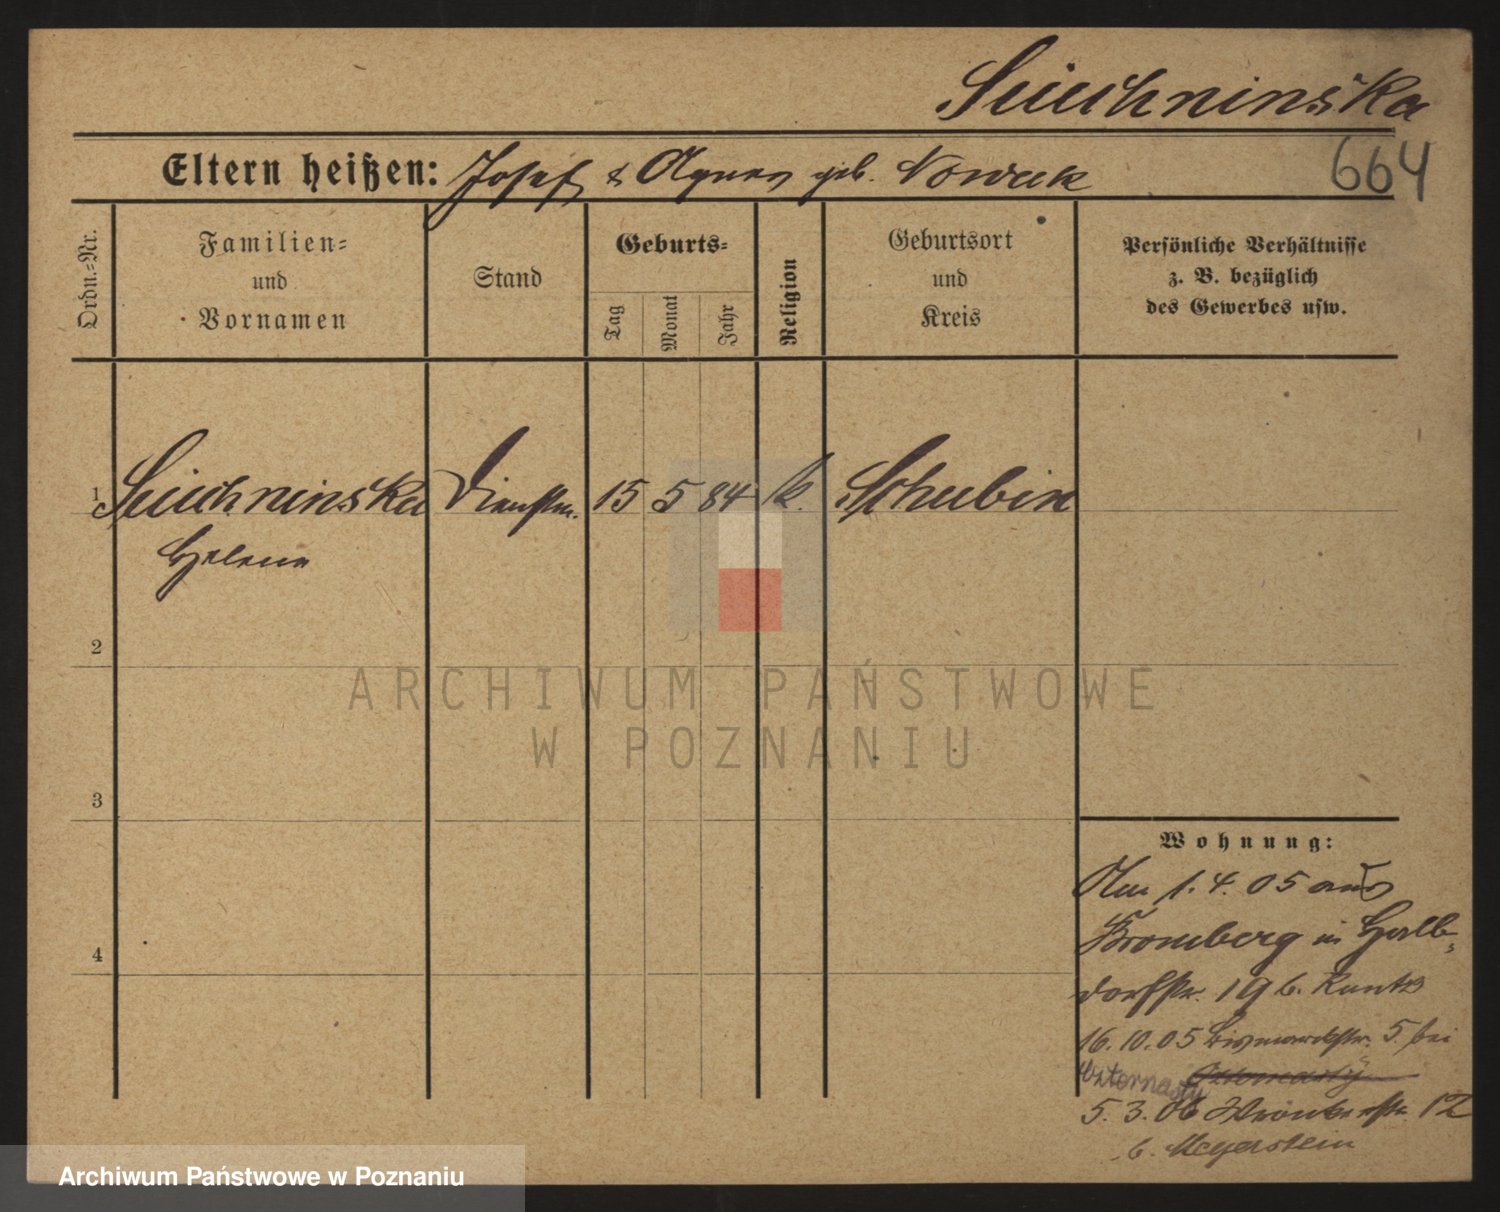 Suchninska
664
Eltern heißen: Josef & Agnes geb. Nowak
Ordn.=Nr.
Familien=
und
Vornamen
Stand
Geburts=
Tag
Monat
Jahr
Religion
Geburtsort
und
Kreis
Persönliche Verhältnisse
z. B. bezüglich
des Gewerbes usw.
1 Dienstm. 15 5 84 k. Schubin
Helena
2
3
4
Wohnung:
Am 1. 4. 05 aus
Bromberg in Halb-
dorfstr. 19 b. Kantz
16. 10. 05 Bismarckstr. 5. bei
5. 3. 06 Wronkerstr. 12
b. Meyerstein
ARCHIWUM PAŃSTWOWE
W POZNANIU
Archiwum Państwowe w Poznaniu